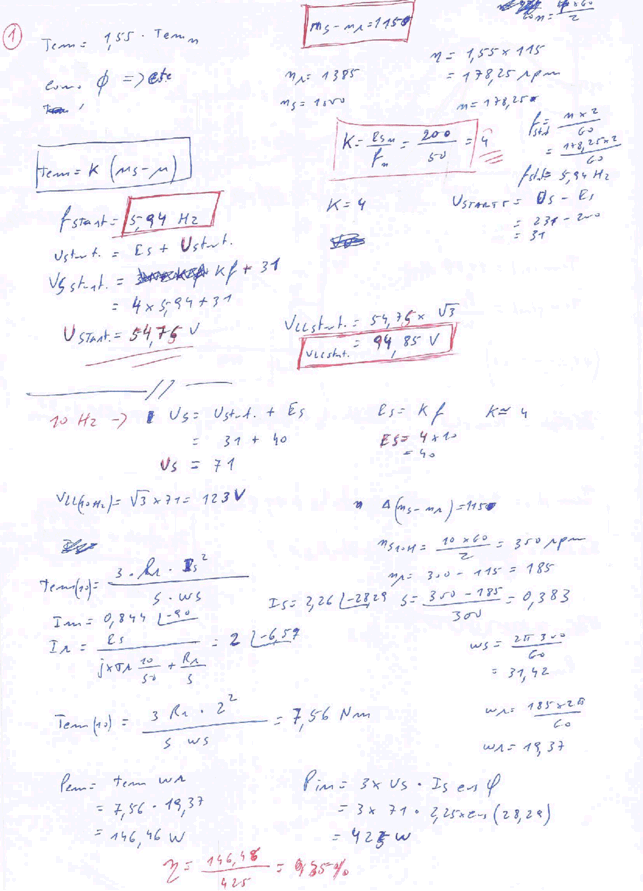 1
Tem = 1,55 · Tem n
ns - nr = 115
com. ϕ => cte
nr = 1385
ns = 1500
η = 1,55 x 115
= 178,25 rpm
n = 178,25
Tem = K (ns - n)
K = Esn/fn = 200/50 = 4
fstat = n x 2/60
= 178,25 x 2/60
fstat = 5,94 Hz
fSTART = 5,94 Hz
K = 4
USTART = Us - Es
= 231 - 200
= 31
Ustart. = Es + Ustart.
Us start. = Kf + 31
= 4 x 5,94 + 31
USTART. = 54,75 V
VLLstart. = 54,75 x √3
VLLstart. = 94,85 V
10 Hz -> Us = Ustart. + Es
Es = Kf
K ≈ 4
= 31 + 40
ES = 4 x 10
= 40
Us = 71
VLL(10Hz) = √3 x 71 = 123 V
Δ(ns - nr) = 115
ns10H = 10 x 60/2 = 300 rpm
nr = 300 - 115 = 185
Tem(10) = 3 · Rr · Is²/s · ws
Is = 2,26 ∠-28,29
s = 300 - 185/300 = 0,383
Im = 0,844 ∠-90
Ir = Es/jxσr 10/50 + Rr/s = 2 ∠-6,59
ws = 2π 300/60
= 31,42
Tem(10) = 3 Rr · 2²/s ws = 7,56 Nm
wr = 185 x 2π/60
wr = 19,37
Pem = tem wr
= 7,56 · 19,37
= 146,46 W
Pin = 3 x Us · Is cos φ
= 3 x 71 · 2,25 x cos (28,29)
= 425 W
η = 146,46/425 = 0,35 %